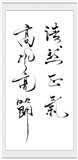 浩然正氣
高風亮節